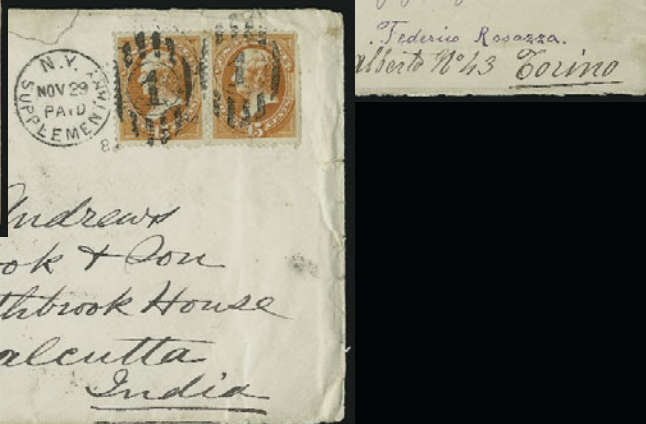 N.Y.
NOV 29
PAID
SUPPLEMENTARY
1
1
15 CENTS
Andrews
ok & Son
thbrook House
alcutta
India
Federico Rosazza.
Alberto Nº 43 Torino